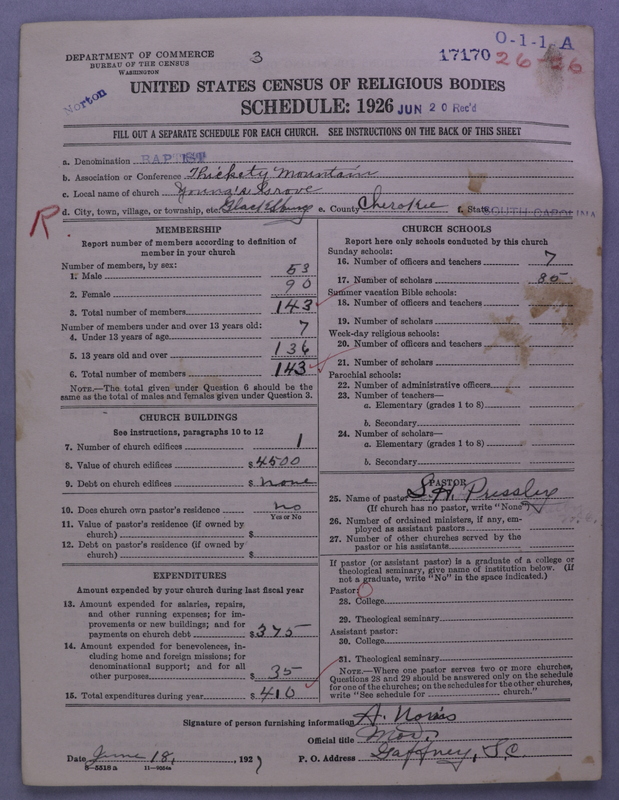 O-1-1 A
DEPARTMENT OF COMMERCE
BUREAU OF THE CENSUS
WASHINGTON
3
17170
26-26
Norton
UNITED STATES CENSUS OF RELIGIOUS BODIES
SCHEDULE: 1926 JUN 20 Rec'd
FILL OUT A SEPARATE SCHEDULE FOR EACH CHURCH. SEE INSTRUCTIONS ON THE BACK OF THIS SHEET
a. Denomination BAPTIST
b. Association or Conference Thickety Mountain
c. Local name of church Young's Grove
R d. City, town, village, or township, etc. Blacksburg e. County Cherokee f. State SOUTH CAROLINA
MEMBERSHIP
Report number of members according to definition of
member in your church
Number of members, by sex:
1. Male 53
2. Female 90
3. Total number of members 143
Number of members under and over 13 years old:
4. Under 13 years of age 7
5. 13 years old and over 136
6. Total number of members 143
NOTE.—The total given under Question 6 should be the
same as the total of males and females given under Question 3.
CHURCH BUILDINGS
See instructions, paragraphs 10 to 12
7. Number of church edifices 1
8. Value of church edifices $4500
9. Debt on church edifices $ none
10. Does church own pastor's residence no
Yes or No
11. Value of pastor's residence (if owned by
church) $
12. Debt on pastor's residence (if owned by
church) $
EXPENDITURES
Amount expended by your church during last fiscal year
13. Amount expended for salaries, repairs,
and other running expenses; for im-
provements or new buildings; and for
payments on church debt $375
14. Amount expended for benevolences, in-
cluding home and foreign missions; for
denominational support; and for all
other purposes $ 35
15. Total expenditures during year $410
CHURCH SCHOOLS
Report here only schools conducted by this church
Sunday schools:
16. Number of officers and teachers 7
17. Number of scholars 85
Summer vacation Bible schools:
18. Number of officers and teachers
19. Number of scholars
Week-day religious schools:
20. Number of officers and teachers
21. Number of scholars
Parochial schools:
22. Number of administrative officers
23. Number of teachers—
a. Elementary (grades 1 to 8)
b. Secondary
24. Number of scholars—
a. Elementary (grades 1 to 8)
b. Secondary
PASTOR
25. Name of pastor S. H. Pressley
(If church has no pastor, write "None")
26. Number of ordained ministers, if any, em-
ployed as assistant pastors
27. Number of other churches served by the
pastor or his assistants
If pastor (or assistant pastor) is a graduate of a college or
theological seminary, give name of institution below. (If
not a graduate, write "No" in the space indicated.)
Pastor:
28. College
29. Theological seminary
Assistant pastor:
30. College
31. Theological seminary
NOTE.—Where one pastor serves two or more churches,
Questions 28 and 29 should be answered only on the schedule
for one of the churches; on the schedules for the other churches,
write "See schedule for church."
Signature of person furnishing information A. Norris
Official title Mod.
Date June 18, 1927 P. O. Address Gaffney, S.C.
8-5518a 11-9354a